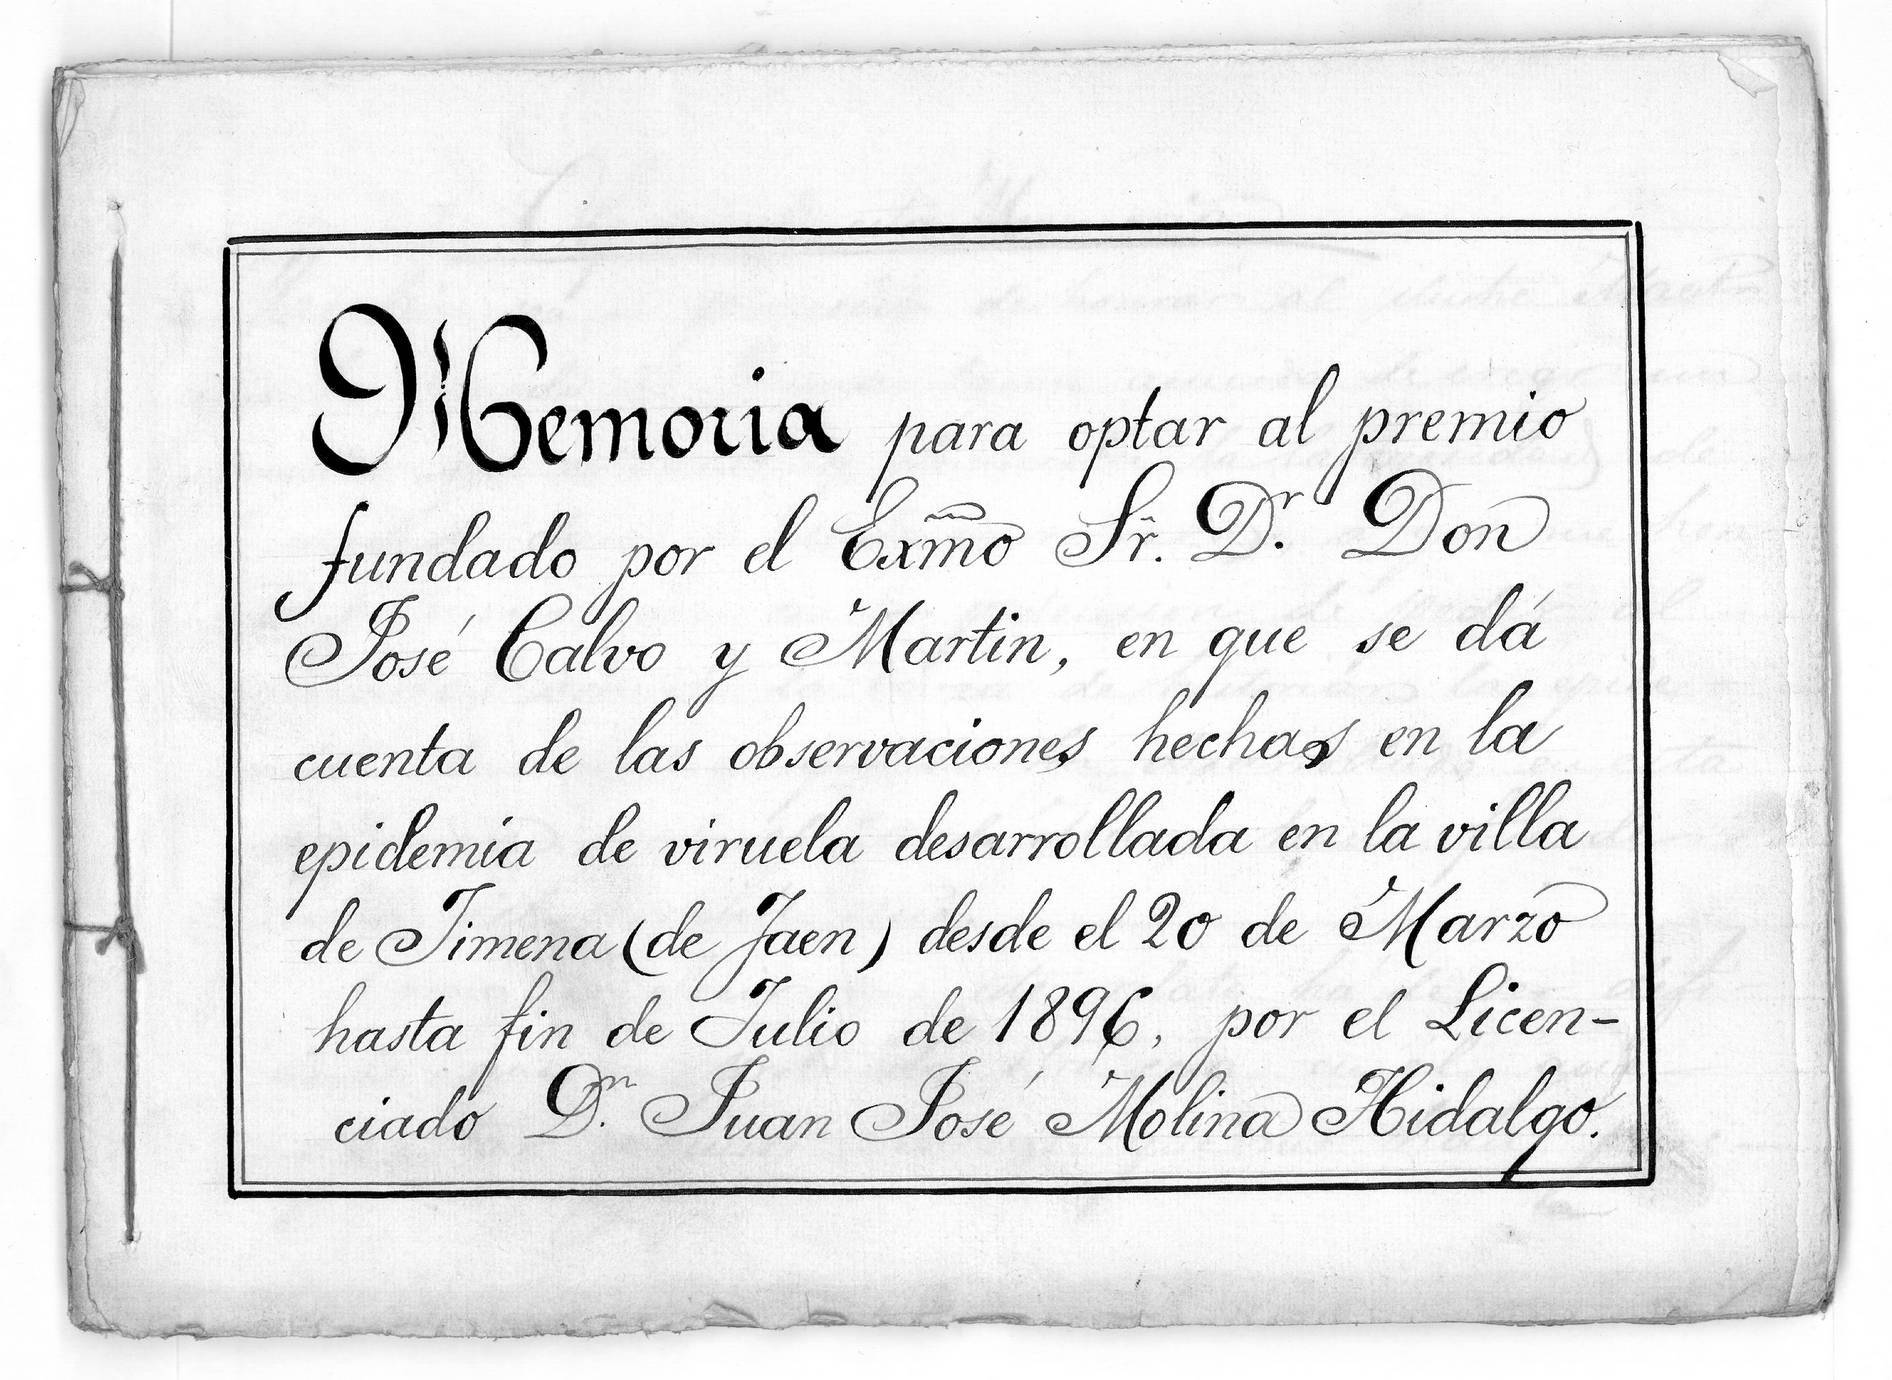 Memoria para optar al premio
fundado por el Exmo Sr. Dr. Don
José Calvo y Martin, en que se dá
cuenta de las observaciones hechas en la
epidemia de viruela desarrollada en la villa
de Jimena (de Jaen) desde el 20 de Marzo
hasta fin de Julio de 1896, por el Licen-
ciado Dn. Juan José Molina Hidalgo.